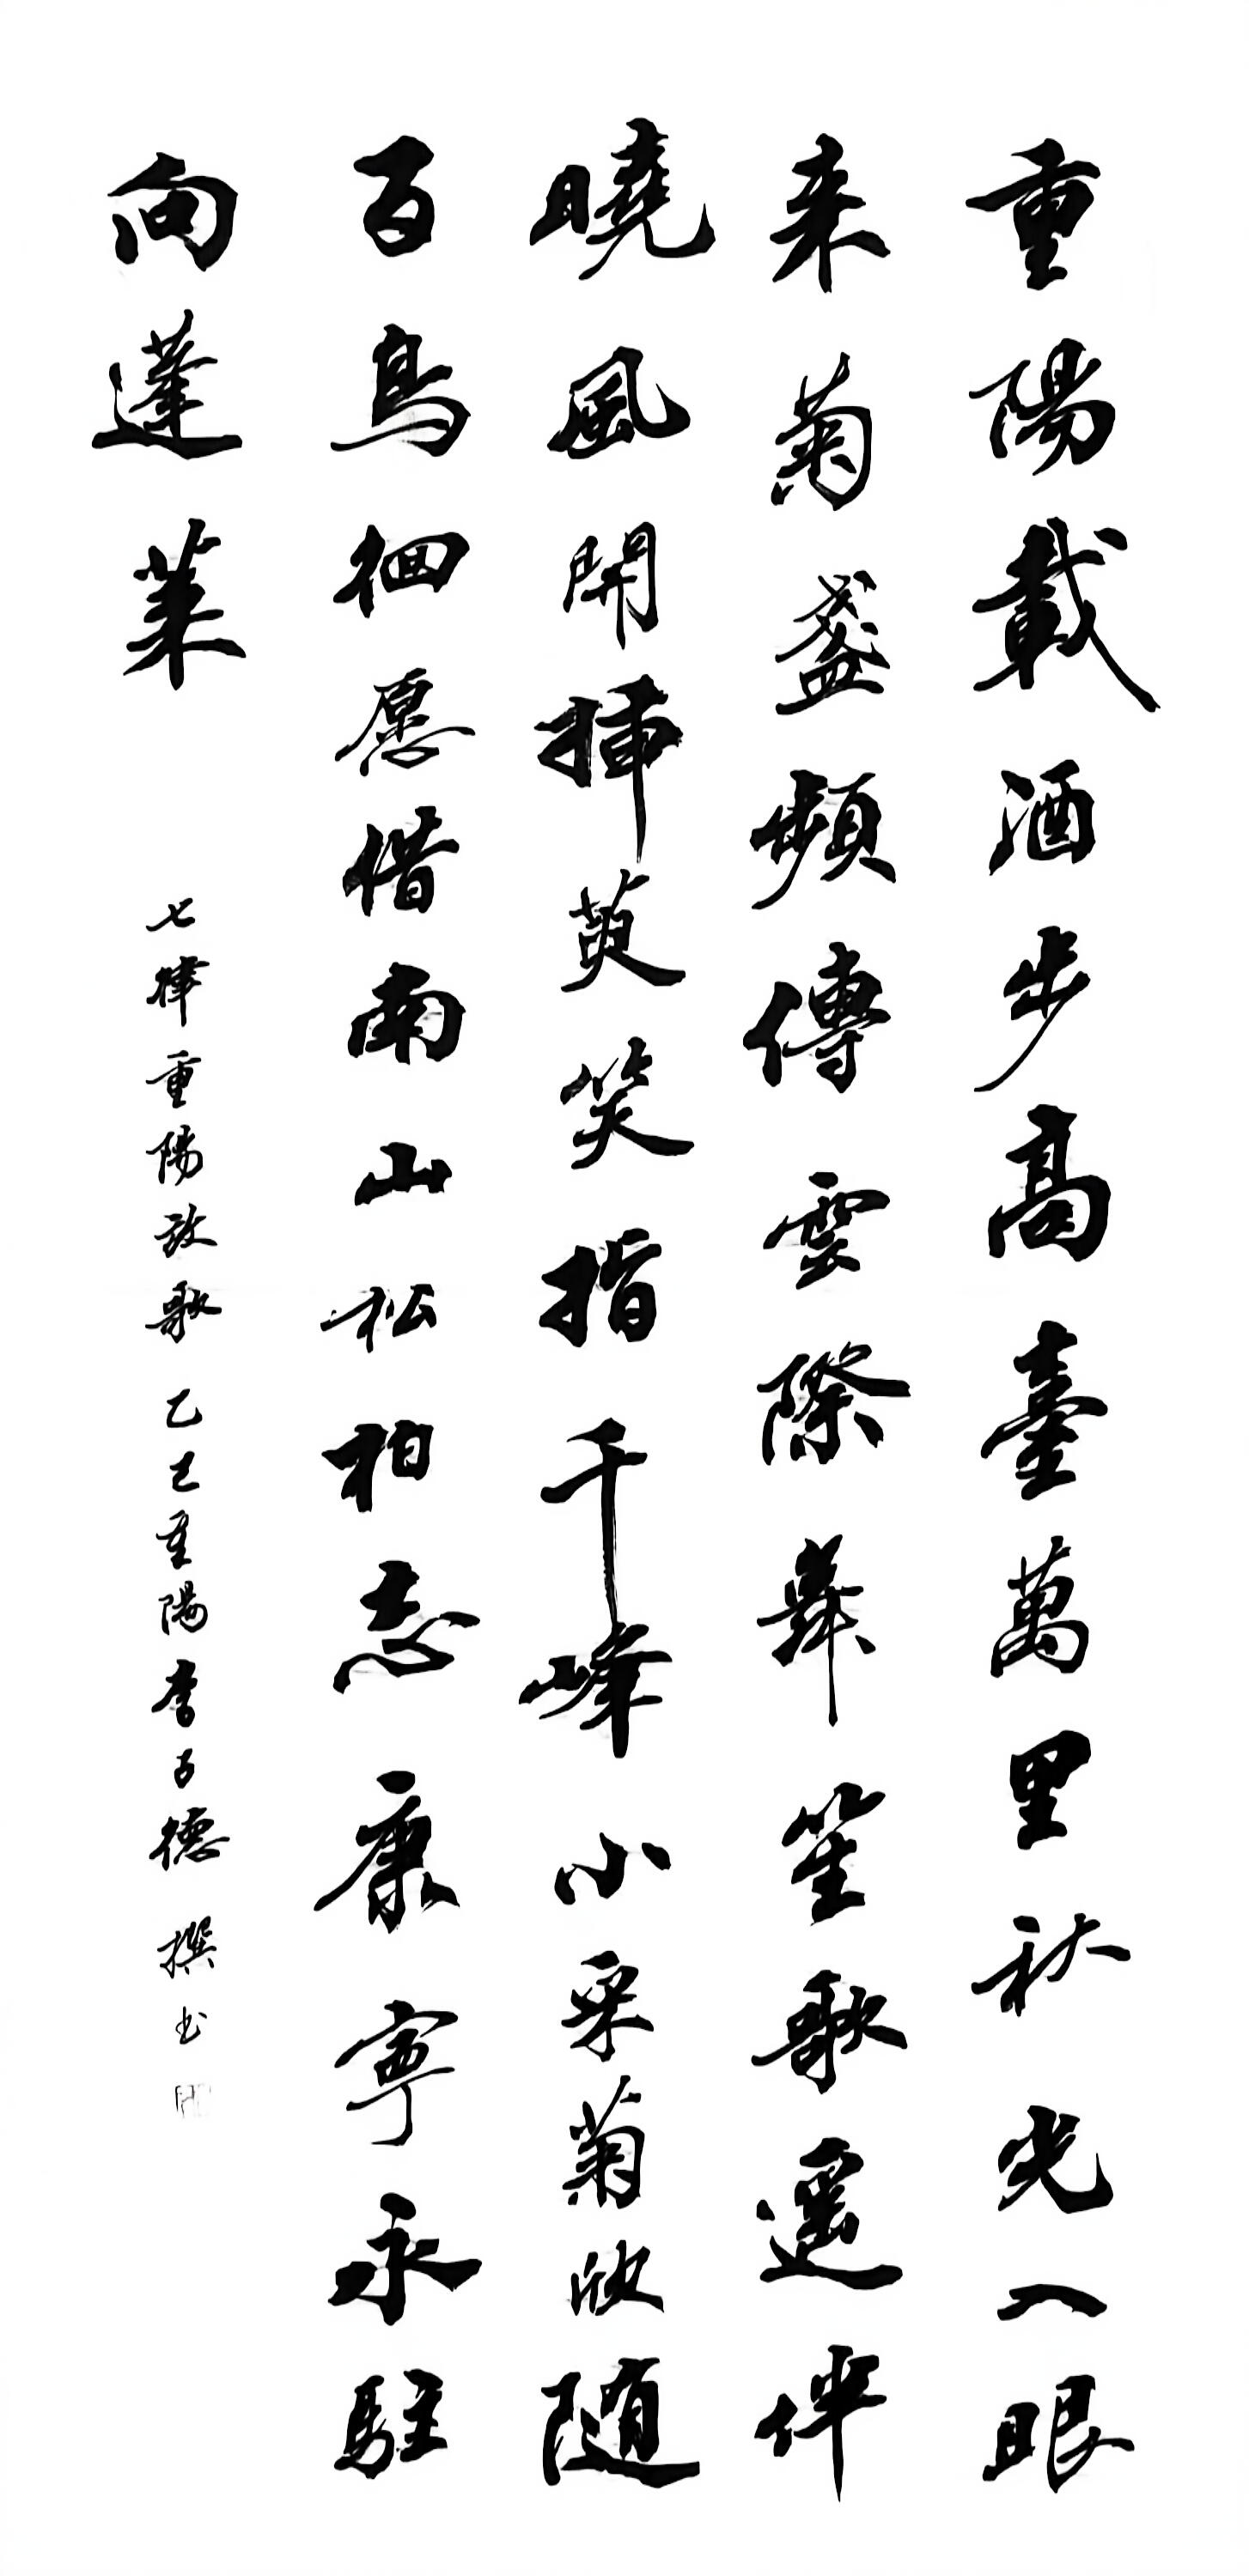 重陽載酒步高臺萬里秋光入眼
来菊盏頻傳雲際舞笙歌遥伴
曉風開揷萸笑指千峰小采菊欣随
百鳥徊愿借南山松柏志康寧永駐
向蓬莱
七律重陽放歌 乙巳重陽李子德 撰书